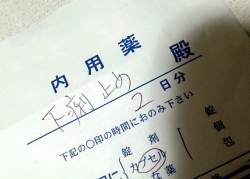 内用薬 殿
下痢止め
2日分
下記の〇印の時間におのみ下さい
錠 錠
剤 個
カプセル 1 包
な薬